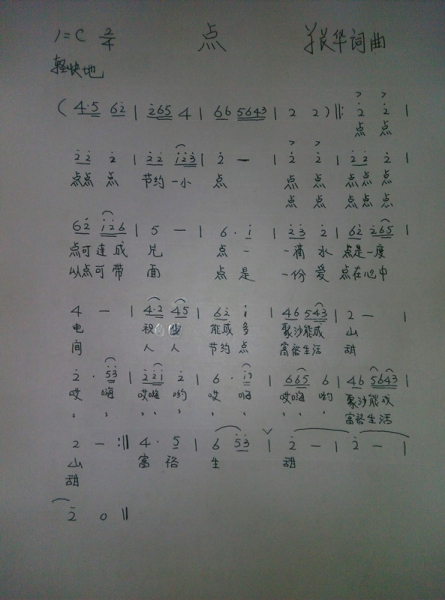 1=C 2/4 点 词曲
轻快地
( 4·5 62 | 265 4 | 66 5643 | 2 2 ) ‖: 2 2 |
点 点
点 点
22 2 | 22 123 | 2 — | 2 2 | 22 2 |
点点 点 节约一小 点 点 点 点点 点
点 点 点点 点
62 126 | 5 — | 6 · i | 23 2 | 62 265 |
点可连成 片 点 一 一滴 水 点是一度
以点可带 面 点 是 一份 爱 点在心中
4 — | 4·2 45 | 62 i | 46 543 | 2 — |
电 能成多 聚沙能成 山
间 人 人 节约点 富裕生活 甜
2 · 53 | 22i 2 | 6 · i7 | 665 6 | 46 5643 |
哎 嗨 哎嗨 哟 哎 嗨 哎嗨 哟 聚沙能成
富裕生活
2 — :‖ 4 · 5 | 6 53 | 2 — | 2 — |
山 富 裕 生 甜
甜
2 0 ‖